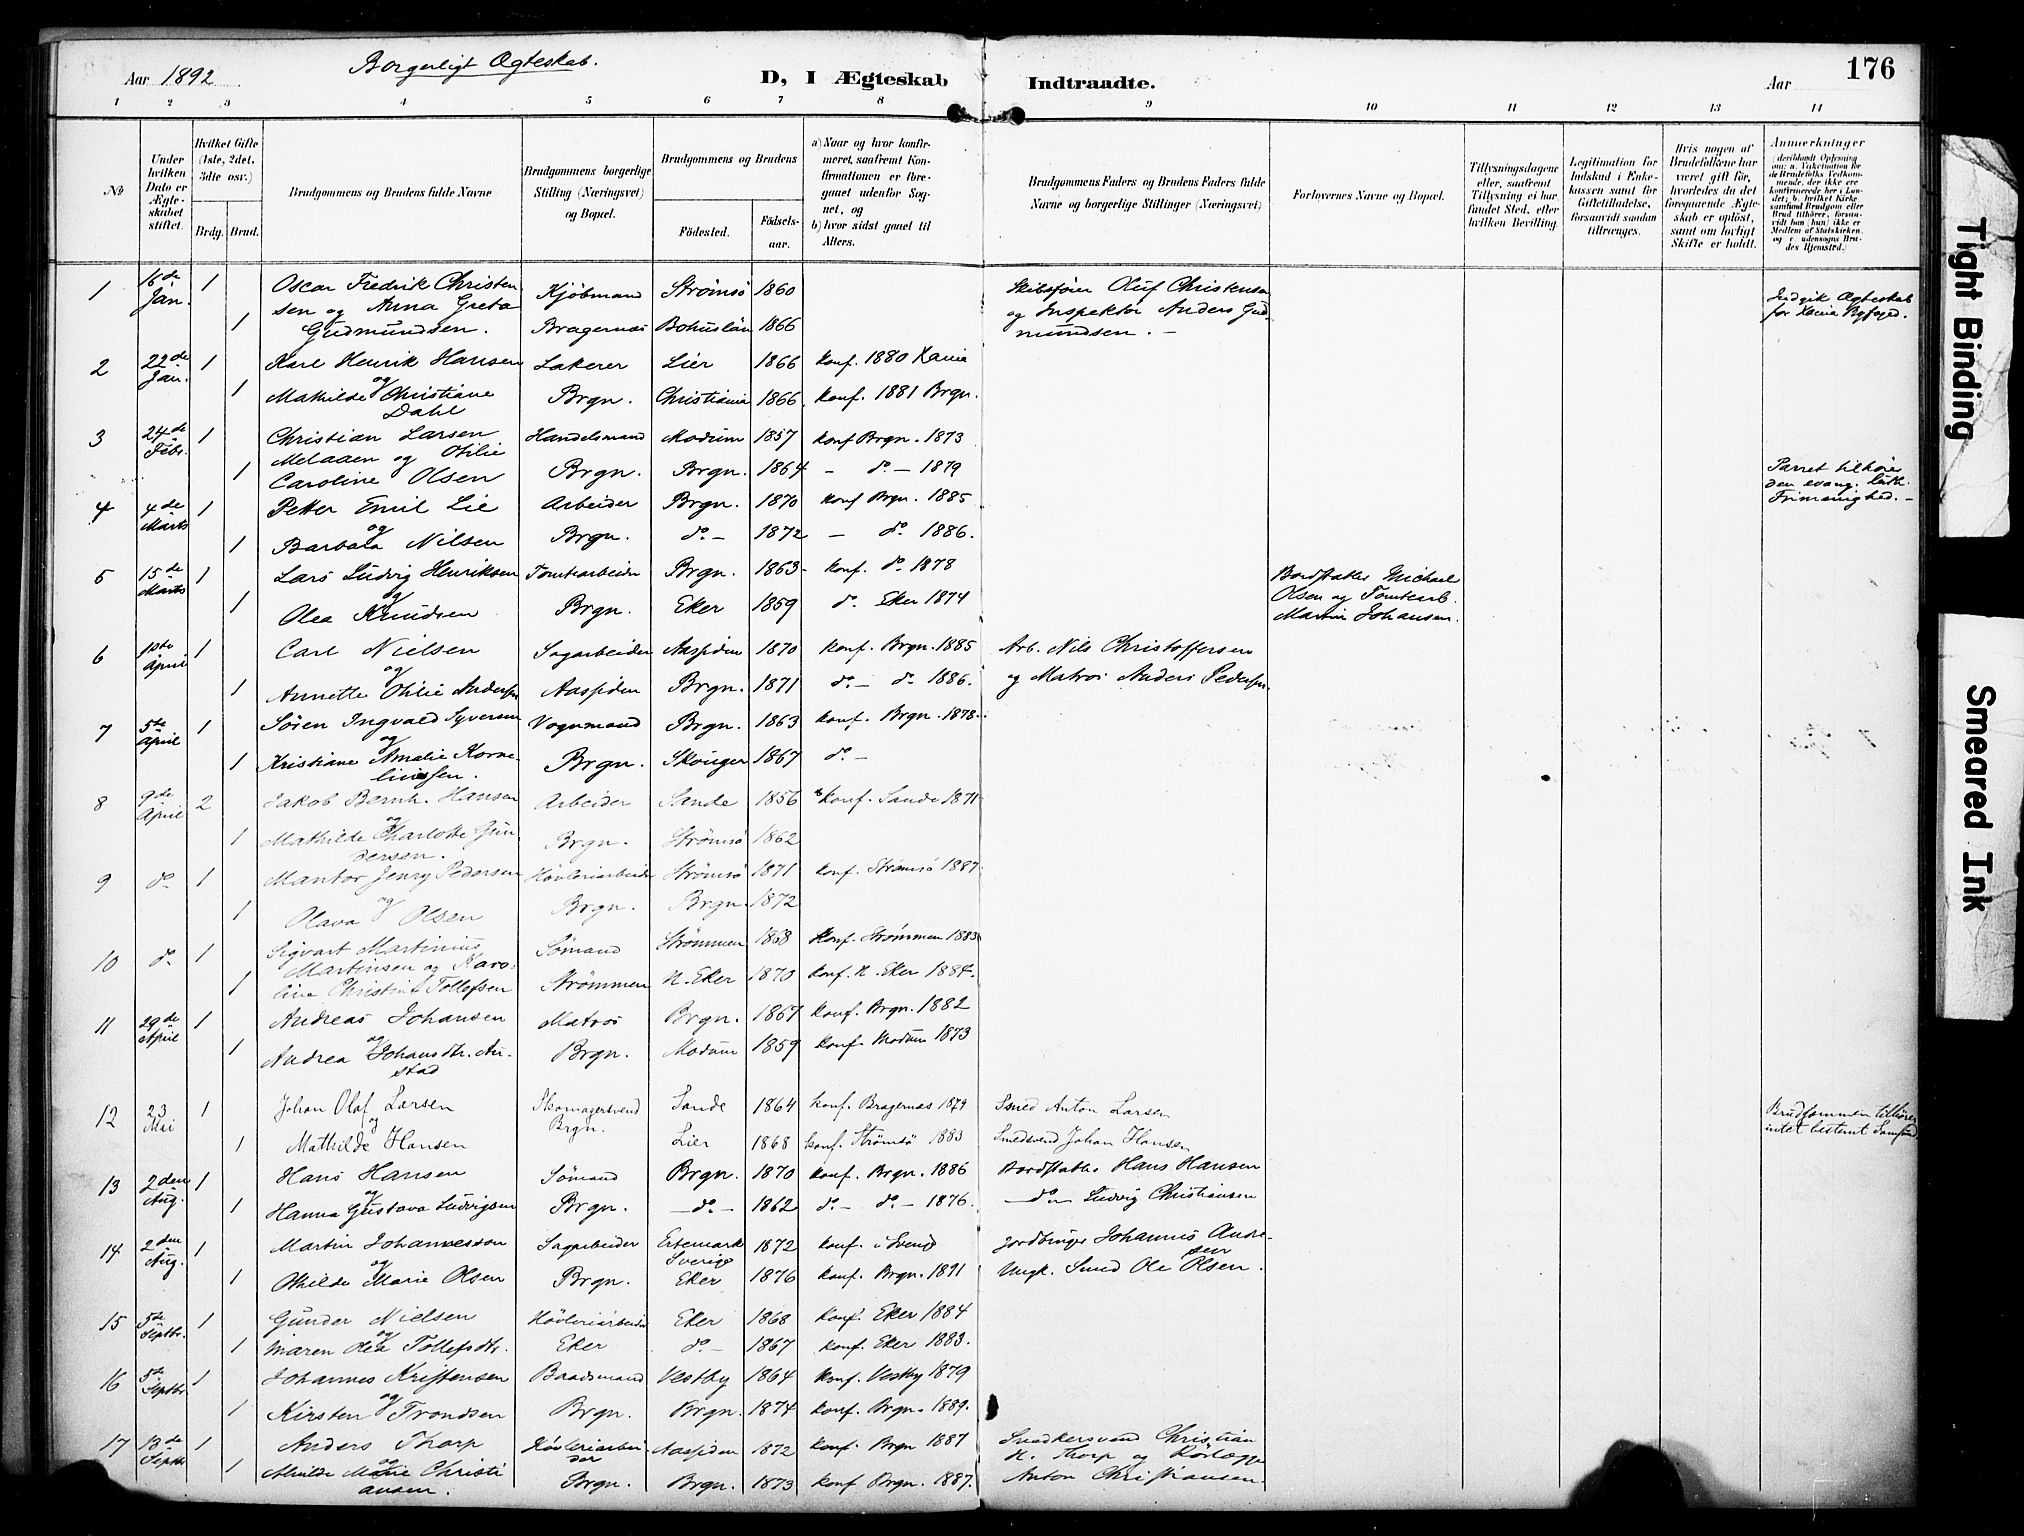 Aar 1892
Borgerligt Ægteskab.
D, I Ægteskab Indtraadte.
Aar
176
1 2 3 4 5 6 7 8 9 10 11 12 13 14
No
Under hvilken Dato er Ægteskabet stiftet.
Hvilket Gifte (1ste, 2det, 3dte osv.)
Brdg. Brud.
Brudgommens og Brudens fulde Navne
Brudgommens borgerlige Stilling (Næringsvei) og Bopæl.
Brudgommens og Brudens
Fødested.
Fødselsaar.
a) Naar og hvor konfirmeret, saafremt Konfirmationen er foregaaet udenfor Sognet, og
b) hvor sidst gaaet til Alters.
Brudgommens Faders og Brudens Faders fulde Navne og borgerlige Stillinger (Næringsvei)
Forlovernes Navne og Bopæl.
Tillysningsdagene eller, saafremt Tillysning ei har fundet Sted, efter hvilken Bevilling.
Legitimation for Indskud i Enkekassen samt for Giftetilladelse, forsaavidt saadan tiltrænges.
Hvis nogen af Brudefolkene har været gift før, hvorledes da det foregaaende Ægteskab er opløst, samt om lovligt Skifte er holdt.
Anmerkninger
1 16de Jan. 1 Oscar Fredrik Christensen og Anna Greta Gudmundsen. Kjøbmand Strömsö 1860 Skibsfører Oluf Christensen
1 Bragernæs Bohuslän 1866 og Inspektør Anders Gudmundsen. —
Indgik Ægteskab for Xania Byfoged.
2 22de Jan. 1 Karl Henrik Hansen Lakerer Lier 1866 konf. 1880 Xania
1 og Mathilde Christiane Dahl Brgn. Christiania 1866. konf. 1881 Brgn.
3 24de Febr. 1 Christian Larsen Melaaen og Otilie Handelsmand Modum 1857 konf Brgn. 1873
1 Caroline Olsen Brgn. Brgn. 1864 - do - 1879
Parret tilhører den evang. luth. Frimenighed. -
4 4de Marts 1 Petter Emil Lie Arbeider Brgn. 1870 konf Brgn. 1885
1 og Barbara Nilsen Brgn. do - 1872 - do 1886.
5 15de Marts 1 Lars Ludvig Henriksen Tomtearbeider Brgn. 1863 - konf. do 1878
1 og Olea Knudsen Brgn. Eker 1859 do. Eker 1874
Bordstabler Michael Olsen og Tomtearb. Martin Johansen.
6 1ste April 1 Carl Nielsen Sagarbeider Aaspiden 1870 konf. Brgn. 1885 Arb. Nils Christoffersen
1 og Annette Otilie Andersen Aaspiden Brgn. 1871 do. - do 1886. og Matros Anders Pedersen.
7 5te April 1 Søren Ingvald Syversen Vognmand Brgn. 1863 konf. Brgn. 1878.
1 og Kristiane Amalie Korneliussen. Brgn. Skouger 1867 do -
8 9de April 2 Jakob Bernh. Hansen Arbeider Sande 1856 konf. Sande 1871
1 og Mathilde Charlotte Gundersen. Brgn. Strömsö 1862
9 do 1 Mantor Jenry Pedersen Høvleriarbeider Strömsö 1871 konf. Strömsö 1887.
1 og Olava Olsen Brgn. Brgn. 1872
10 do 1 Sigvart Martinius Martinsen og Karo- Sømand Strømmen 1868 Konf. Strømmen 1883
1 line Christine Tollefsen Strømmen N. Eker 1870 konf. N. Eker 1884.
11 29de April 1 Andreas Johansen Matros Brgn. 1867 konf. Brgn. 1882
1 og Andrea Johansdtr. Austad Brgn. Modum 1859 konf. Modum 1873
12 23 Mai 1 Johan Olaf Larsen Skomagersvend Sande 1864 konf. Bragernæs 1879 Smed Anton Larsen
1 og Mathilde Hansen Brgn. Lier 1868 konf. Strömsö 1883 Smedsvend Johan Hansen
Brudgommen tilhører intet bestemt Samfund
13 2den Aug. 1 Hans Hansen Sømand Brgn. 1870 konf. Brgn. 1886 Bordstabler Hans Hansen
1 og Hanna Gustava Ludvigsen Brgn. - do - 1862 do - do - 1876. - do - Ludvig Christiansen
14 2den Aug. 1 Martin Johannesson Sagarbeider Ertemark Sverige 1872 konf. i Sverige Jordbruger Johannes Andresen
1 og Othilde Marie Olsen Brgn. Eker 1876 konf. Brgn. 1891 Ungk. Smed Ole Olsen.
15 5te Septbr. 1 Gunder Nielsen Høvleriarbeider Eker 1868 konf. Eker 1884
1 og Maren Olea Tollefsdtr. Eker do - 1867 konf. Eker 1883.
16 5te Septbr. 1 Johannes Kristensen Baadsmand Vestby 1864 konf. Vestby 1879
1 og Kirsten Trondsen Brgn. Brgn. 1874 konf. Brgn. 1889.
17 13de Septbr 1 Anders Thorp Høvleriarbeider Aaspiden 1872 konf. Brgn 1887 Snedkersvend Christian
1 og Alvilde Marie Christiansen. Brgn. Brgn. 1873 konf Brgn. 1887. H. Thorp og Rørlægger Anton Christiansen.
Tight Binding
Smeared Ink